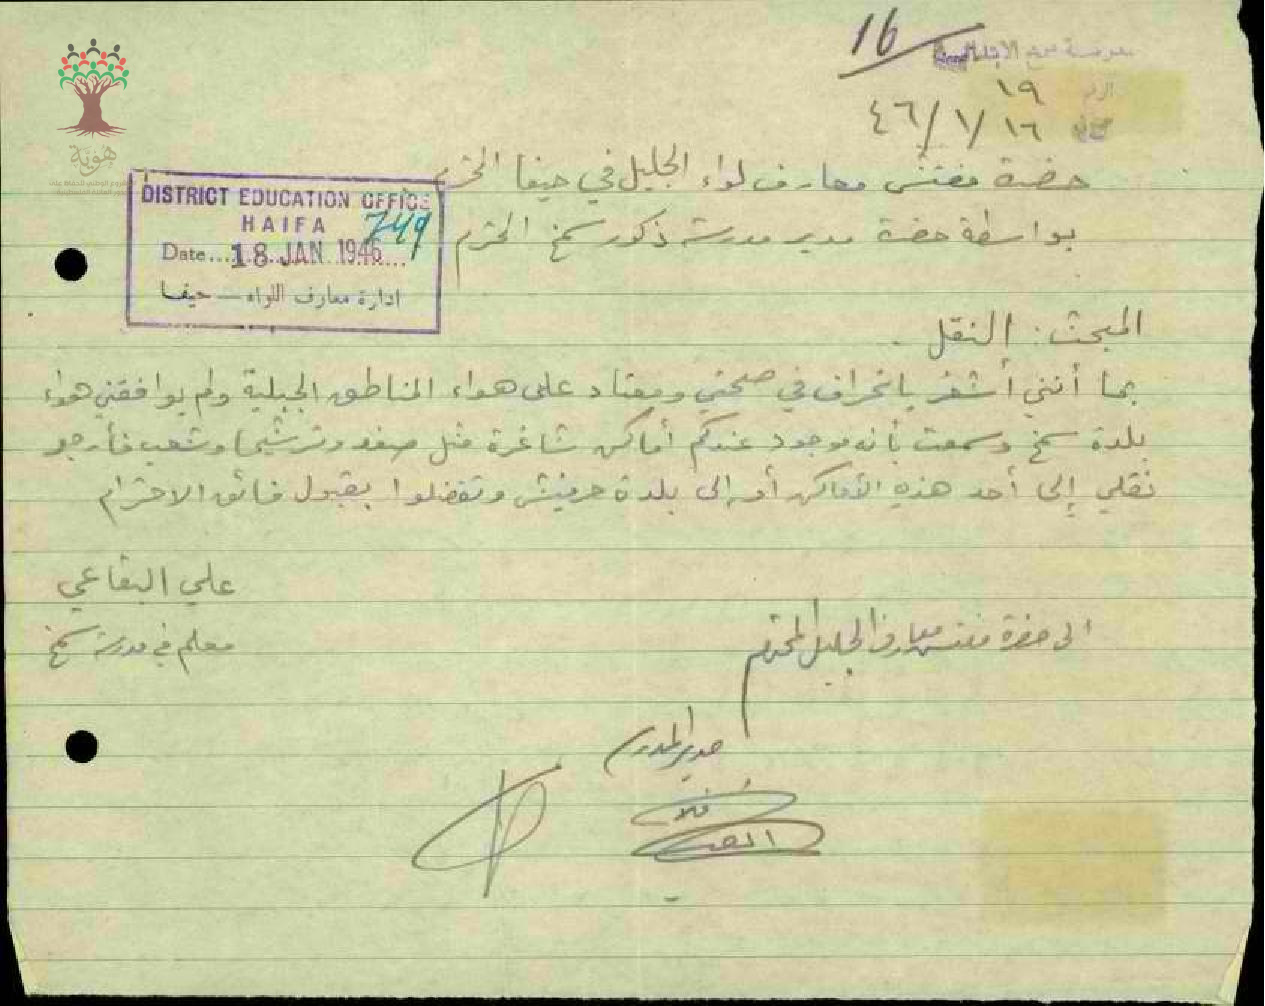 16
مدرسة سمخ الابتدائية
الرقم ١٩
١٦ / ١ / ٤٦
هويّة
حضرة مفتش معارف لواء الجليل في حيفا المحترم
بواسطة حضرة مدير مدرسة ذكور سمخ المحترم
DISTRICT EDUCATION OFFICE
HAIFA
749
Date... 18 JAN 1946...
ادارة معارف اللواء — حيفا
المبحث: النقل.
بما أنني أشعر بانحراف في صحتي ومعتاد على هواء المناطق الجبلية ولم يوافقني هواء
بلدة سمخ وسمعت بأنه موجود عندكم أماكن شاغرة مثل صفد وترشيحا وشعب فأرجو
نقلي إلى أحد هذه الأماكن أو إلى بلدة حرفيش وتفضلوا بقبول فائق الاحترام
علي البقاعي
معلم في مدرسة سمخ
الى حضرة مفتش معارف الجليل المحترم
مدير المدرسة